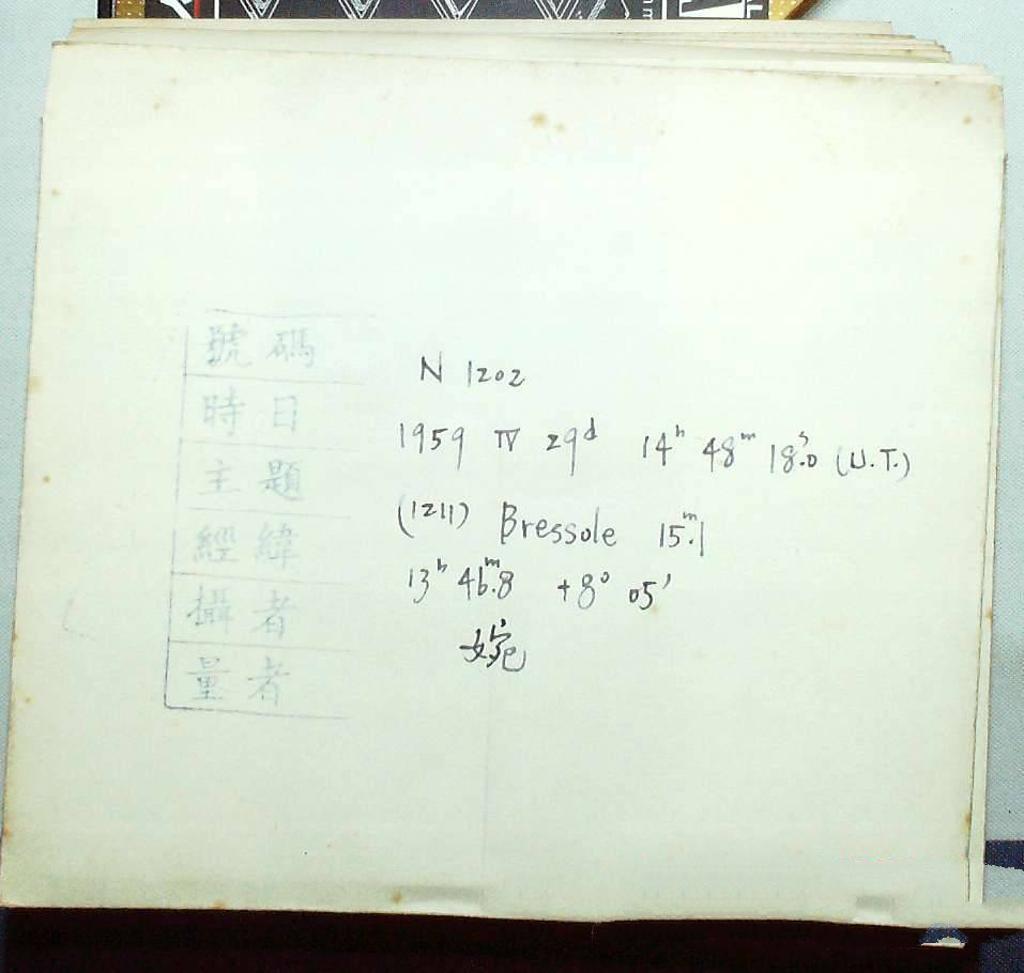 號碼 N 1202
時日 1959 IV 29ᵈ 14ʰ 48ᵐ 18ˢ.0 (U.T.)
主題 (1211) Bressole 15ᵐ.1
經緯 13ʰ 46ᵐ.8 +8° 05′
攝者 婉
量者